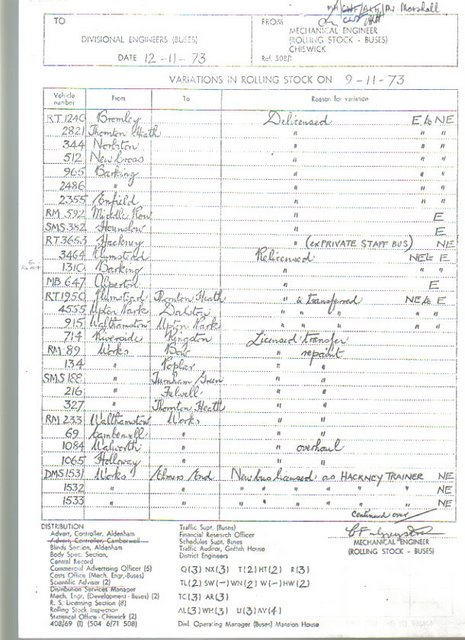 TO
DIVISIONAL ENGINEERS (BUSES)
DATE 12-11-73
Marshall
FROM
MECHANICAL ENGINEER
(ROLLING STOCK - BUSES)
CHISWICK
VARIATIONS IN ROLLING STOCK ON 9-11-73
Vehicle number From To Reason for variation
RT.1240 Bromley Delicensed E to NE
2821 Thornton Heath " " "
344 Norbiton " " "
512 New Cross " " "
965 Barking " " "
2486 " " " "
2355 Enfield " " "
RM.592 Middle Row " E
SMS.382 Hounslow " E
RT.3663 Hackney " (EX PRIVATE STAFF BUS) NE
3464 Plumstead Relicensed NE to E
1310 Barking " " "
MB.647 Alperton " E
RT1950 Plumstead Thornton Heath " & transferred NE to E
4555 Upton Park Dalston " " " " "
915 Walthamstow Upton Park " " " " "
714 Riverside Licensed transfer
RM.89 Works Bow " repaint
134 " Poplar " "
SMS 188 " Turnham Green " "
216 " Fulwell " "
327 " Thornton Heath " "
RM 233 Walthamstow Works " "
69 Camberwell " " "
1084 Walworth " " overhaul
1065 Holloway " " "
DMS1531 Works Elmers End New bus licensed as HACKNEY TRAINER NE
1532 " " " " " " " " NE
1533 " " " " " " " " NE
Continued over
MECHANICAL ENGINEER
(ROLLING STOCK - BUSES)
DISTRIBUTION
Advert. Controller, Aldenham
Advert. Controller, Camberwell
Blinds Section, Aldenham
Body Spec. Section,
Central Record
Commercial Advertising Officer (6)
Costs Office (Mech. Engr.-Buses)
Scientific Adviser (2)
Distribution Services Manager
Mech. Engr. (Development - Buses) (2)
R. S. Licensing Section (8)
Rolling Stock Inspection
Statistical Office - Chiswick (2)
408/69 (1) (504 6/71 508)
Traffic Supt. (Buses)
Financial Research Officer
Schedules Supt. Buses
Traffic Auditor, Griffith House
District Engineers
Q(3) NX(3) T(2) HT(2) R(3)
TL(2) SW(-) WN(2) W(-) HW(2)
TC(3) AR(3)
AL(3) WH(3) U(3) AV(4)
Divl. Operating Manager (Buses) Mansion House